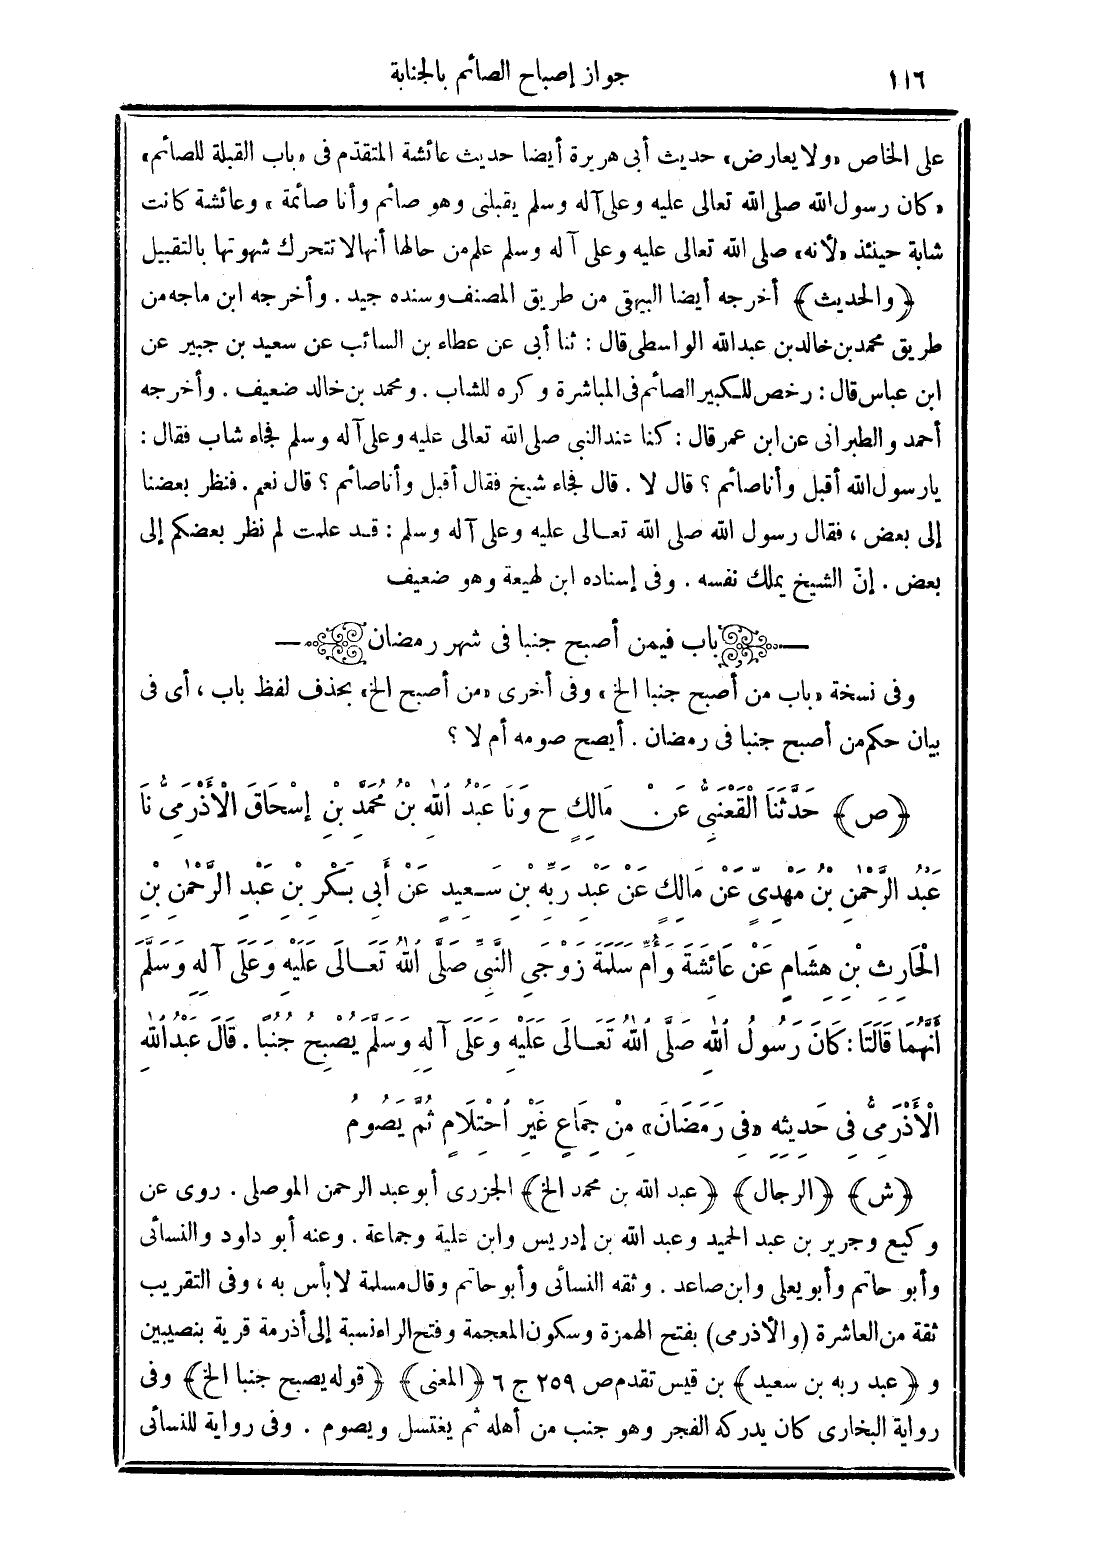 ١١٦ جواز إصباح الصائم بالجنابة
على الخاص «ولا يعارض» حديث أبى هريرة أيضا حديث عائشة المتقدّم فى «باب القبلة للصائم»
«كان رسول الله صلى الله تعالى عليه وعلى آله وسلم يقبلنى وهو صائم وأنا صائمة» وعائشة كانت
شابة حينئذ «لأنه» صلى الله تعالى عليه وعلى آله وسلم علم من حالها أنها لا تتحرك شهوتها بالتقبيل
﴿والحديث﴾ أخرجه أيضا البيهقى من طريق المصنف وسنده جيد . وأخرجه ابن ماجه من
طريق محمد بن خالد بن عبد الله الواسطى قال : ثنا أبى عن عطاء بن السائب عن سعيد بن جبير عن
ابن عباس قال : رخص للكبير الصائم فى المباشرة وكره للشاب . ومحمد بن خالد ضعيف . وأخرجه
أحمد والطبرانى عن ابن عمر قال : كنا عند النبى صلى الله تعالى عليه وعلى آله وسلم فجاء شاب فقال :
يا رسول الله أقبل وأنا صائم ؟ قال لا . قال فجاء شيخ فقال أقبل وأنا صائم ؟ قال نعم . فنظر بعضنا
إلى بعض ، فقال رسول الله صلى الله تعالى عليه وعلى آله وسلم : قد علمت لم نظر بعضكم إلى
بعض . إنّ الشيخ يملك نفسه . وفى إسناده ابن لهيعة وهو ضعيف
باب فيمن أصبح جنبا فى شهر رمضان
وفى نسخة «باب من أصبح جنبا الخ» وفى أخرى «من أصبح الخ» بحذف لفظ باب ، أى فى
بيان حكم من أصبح جنبا فى رمضان . أيصح صومه أم لا ؟
﴿ص﴾ حَدَّثَنَا الْقَعْنَبِىُّ عَنْ مَالِكٍ ح وَنَا عَبْدُ اللهِ بْنُ مُحَمَّدِ بْنِ إِسْحَاقَ الْأَذْرَمِىُّ نَا
عَبْدُ الرَّحْمٰنِ بْنُ مَهْدِىٍّ عَنْ مَالِكٍ عَنْ عَبْدِ رَبِّهِ بْنِ سَعِيدٍ عَنْ أَبِى بَكْرِ بْنِ عَبْدِ الرَّحْمٰنِ بْنِ
الْحَارِثِ بْنِ هِشَامٍ عَنْ عَائِشَةَ وَأُمِّ سَلَمَةَ زَوْجَىِ النَّبِىِّ صَلَّى اللهُ تَعَالَى عَلَيْهِ وَعَلَى آلِهِ وَسَلَّمَ
أَنَّهُمَا قَالَتَا : كَانَ رَسُولُ اللهِ صَلَّى اللهُ تَعَالَى عَلَيْهِ وَعَلَى آلِهِ وَسَلَّمَ يُصْبِحُ جُنُبًا . قَالَ عَبْدُ اللهِ
الْأَذْرَمِىُّ فِى حَدِيثِهِ «فِى رَمَضَانَ» مِنْ جِمَاعٍ غَيْرِ احْتِلَامٍ ثُمَّ يَصُومُ
﴿ش﴾ ﴿الرجال﴾ ﴿عبد الله بن محمد الخ﴾ الجزرى أبو عبد الرحمن الموصلى . روى عن
وكيع وجرير بن عبد الحميد وعبد الله بن إدريس وابن علية وجماعة . وعنه أبو داود والنسائى
وأبو حاتم وأبو يعلى وابن صاعد . وثقه النسائى وأبو حاتم وقال مسلمة لا بأس به ، وفى التقريب
ثقة من العاشرة (والأذرمى) بفتح الهمزة وسكون المعجمة وفتح الراء نسبة إلى أذرمة قرية بنصيبين
و﴿عبد ربه بن سعيد﴾ بن قيس تقدم ص ٢٥٩ ج ٦ ﴿المعنى﴾ ﴿قوله يصبح جنبا الخ﴾ وفى
رواية البخارى كان يدركه الفجر وهو جنب من أهله ثم يغتسل ويصوم . وفى رواية للنسائى